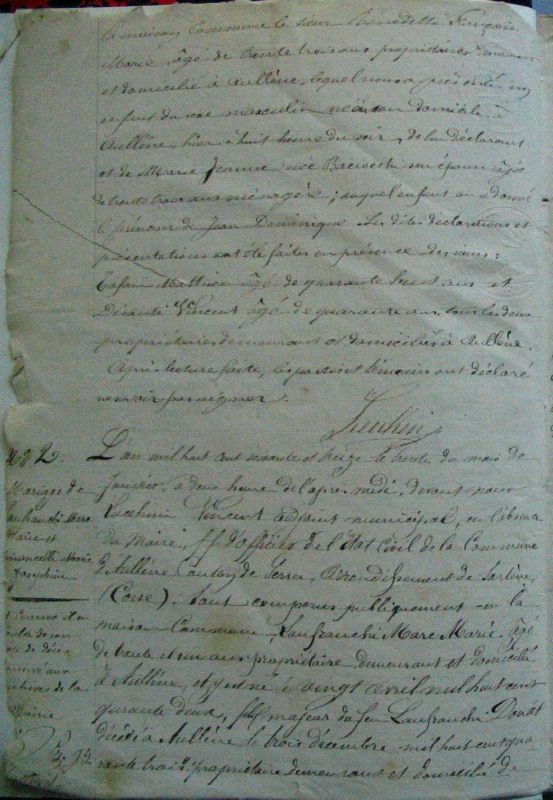 la maison Commune le sieur Bénedetti François
Marie, âgé de trente trois ans propriétaire, demeurant
et domicilié à Aullène, lequel nous a présenté un
enfant du sexe masculin né à son domicile à
Aullène, hier à huit heure du soir, de lui déclarant
et de Marie Jeanne née Baciocchi son épouse âgée
de trente trois ans ménagère; auquel enfant on a donné
le prénom de Jean Dominique. Les dites déclarations et
présentations ont été faites en présence des sieurs:
Mathieu âgé de quarante huit ans et
Vincent âgé de quarante ans tous les deux
propriétaires demeurant et domiciliés à Aullène.
Après lecture faite, les parties et témoins ont déclaré
ne savoir pas signer.
Lucchini
N° 2.
Mariage de
Lanfranchi Marc
Marie et
Marie
Joséphine
L'an mil huit cent soixante et treize le trente du mois de
Janvier, à deux heure de l'après midi, devant nous
Lucchini Vincent adjoint municipal, en l'absence
du Maire, ff d'officier de l'état Civil de la Commune
d'Aullène canton de Serra, arrondissement de Sartène,
(Corse). Sont comparus publiquement en la
maison Commune, Lanfranchi Marc Marie âgé
de trente et un ans propriétaire, demeurant et domicilié
à Aullène, et y est né le vingt avril mil huit cent
quarante deux, fils majeur de feu Lanfranchi Donat
décédé à Aullène le trois décembre mil huit cent qua
rante trois, propriétaire demeurant et domicilié de
de son
acte de décès
archives de la
Mairie